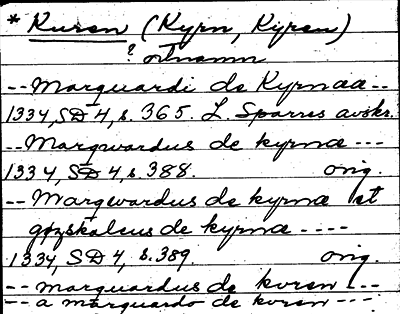 * Kuren (Kyrn, Kyren)
? ortnamn
-- Marquardi de Kyrnaa --
1334, SD 4, s. 365. L. Sparres avskr.
-- Marqwardus de kyrnæ ---
1334, SD 4, s. 388. orig.
-- Marqwardus de kyrnæ et
gozskalcus de kyrnæ ----
1334, SD 4, s. 389. orig.
-- marquardus de kvren ---
-- a marquardo de kvren ---